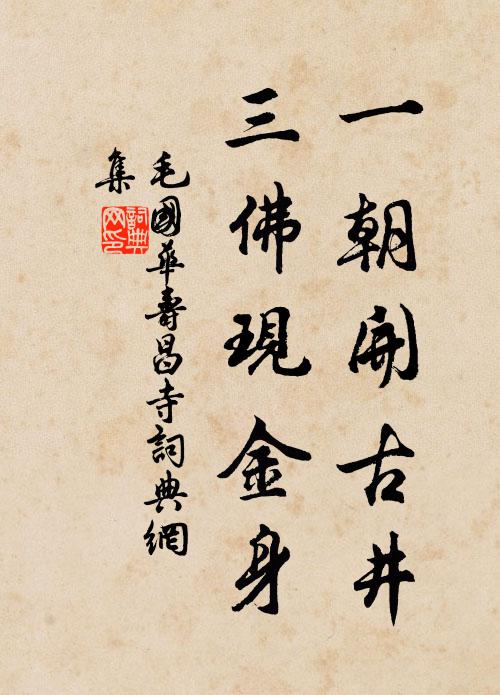 一朝開古井
三佛現金身
毛國華壽昌寺詞典網
集
詞典
网印